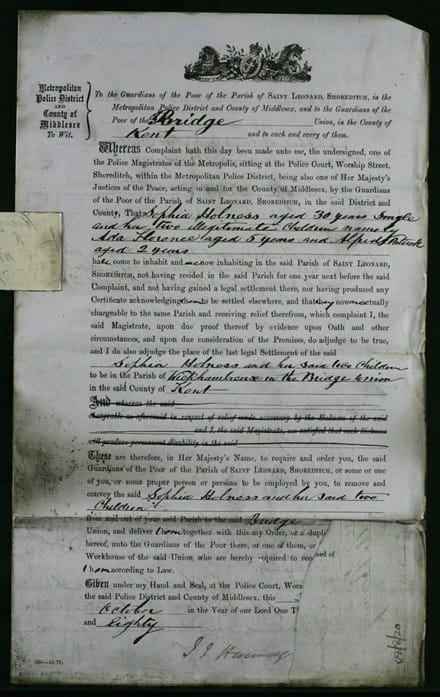 Metropolitan
Police District
AND
County of
Middlesex
To Wit.
To the Guardians of the Poor of the Parish of SAINT LEONARD, SHOREDITCH, in the
Metropolitan Police District and County of Middlesex, and to the Guardians of the
Poor of the Bridge Union, in the County of
Kent and to each and every of them.
Whereas Complaint hath this day been made unto me, the undersigned, one of
the Police Magistrates of the Metropolis, sitting at the Police Court, Worship Street,
Shoreditch, within the Metropolitan Police District, being also one of Her Majesty's
Justices of the Peace, acting in and for the County of Middlesex, by the Guardians
of the Poor of the Parish of SAINT LEONARD, SHOREDITCH, in the said District and
County, That Sophia Holness aged 30 years Single
and her two illegitimate Children namely
Ada Florence aged 5 years and Alfred
aged 2 years
have come to inhabit and now inhabiting in the said Parish of SAINT LEONARD,
SHOREDITCH, not having resided in the said Parish for one year next before the said
Complaint, and not having gained a legal settlement there, nor having produced any
Certificate acknowledging them to be settled elsewhere, and that they now actually
chargeable to the same Parish and receiving relief therefrom, which complaint I, the
said Magistrate, upon due proof thereof by evidence upon Oath and other
circumstances, and upon due consideration of the Premises, do adjudge to be true,
and I do also adjudge the place of the last legal Settlement of the said
Sophia Holness and her said two Children
to be in the Parish of Wickhambreux in the Bridge Union
in the said County of Kent
And whereas the said
chargeable as aforesaid in respect of relief made necessary by the Sickness of the said
and I, the said Magistrate, am satisfied that such Sickness
will produce permanent disability in the said
These are therefore, in Her Majesty's Name, to require and order you, the said
Guardians of the Poor of the Parish of SAINT LEONARD, SHOREDITCH, or some or one
of you, or some proper person or persons to be employed by you, to remove and
convey the said Sophia Holness and her said two
Children
from and out of your said Parish to the said Bridge
Union, and deliver them together with this my Order, or a dupli
hereof, unto the Guardians of the Poor there, or one of them, and of
Workhouse of the said Union, who are hereby required to rec
them according to Law.
Given under my Hand and Seal, at the Police Court, Wors
the said Police District and County of Middlesex, this
October in the Year of our Lord One T
and Eighty